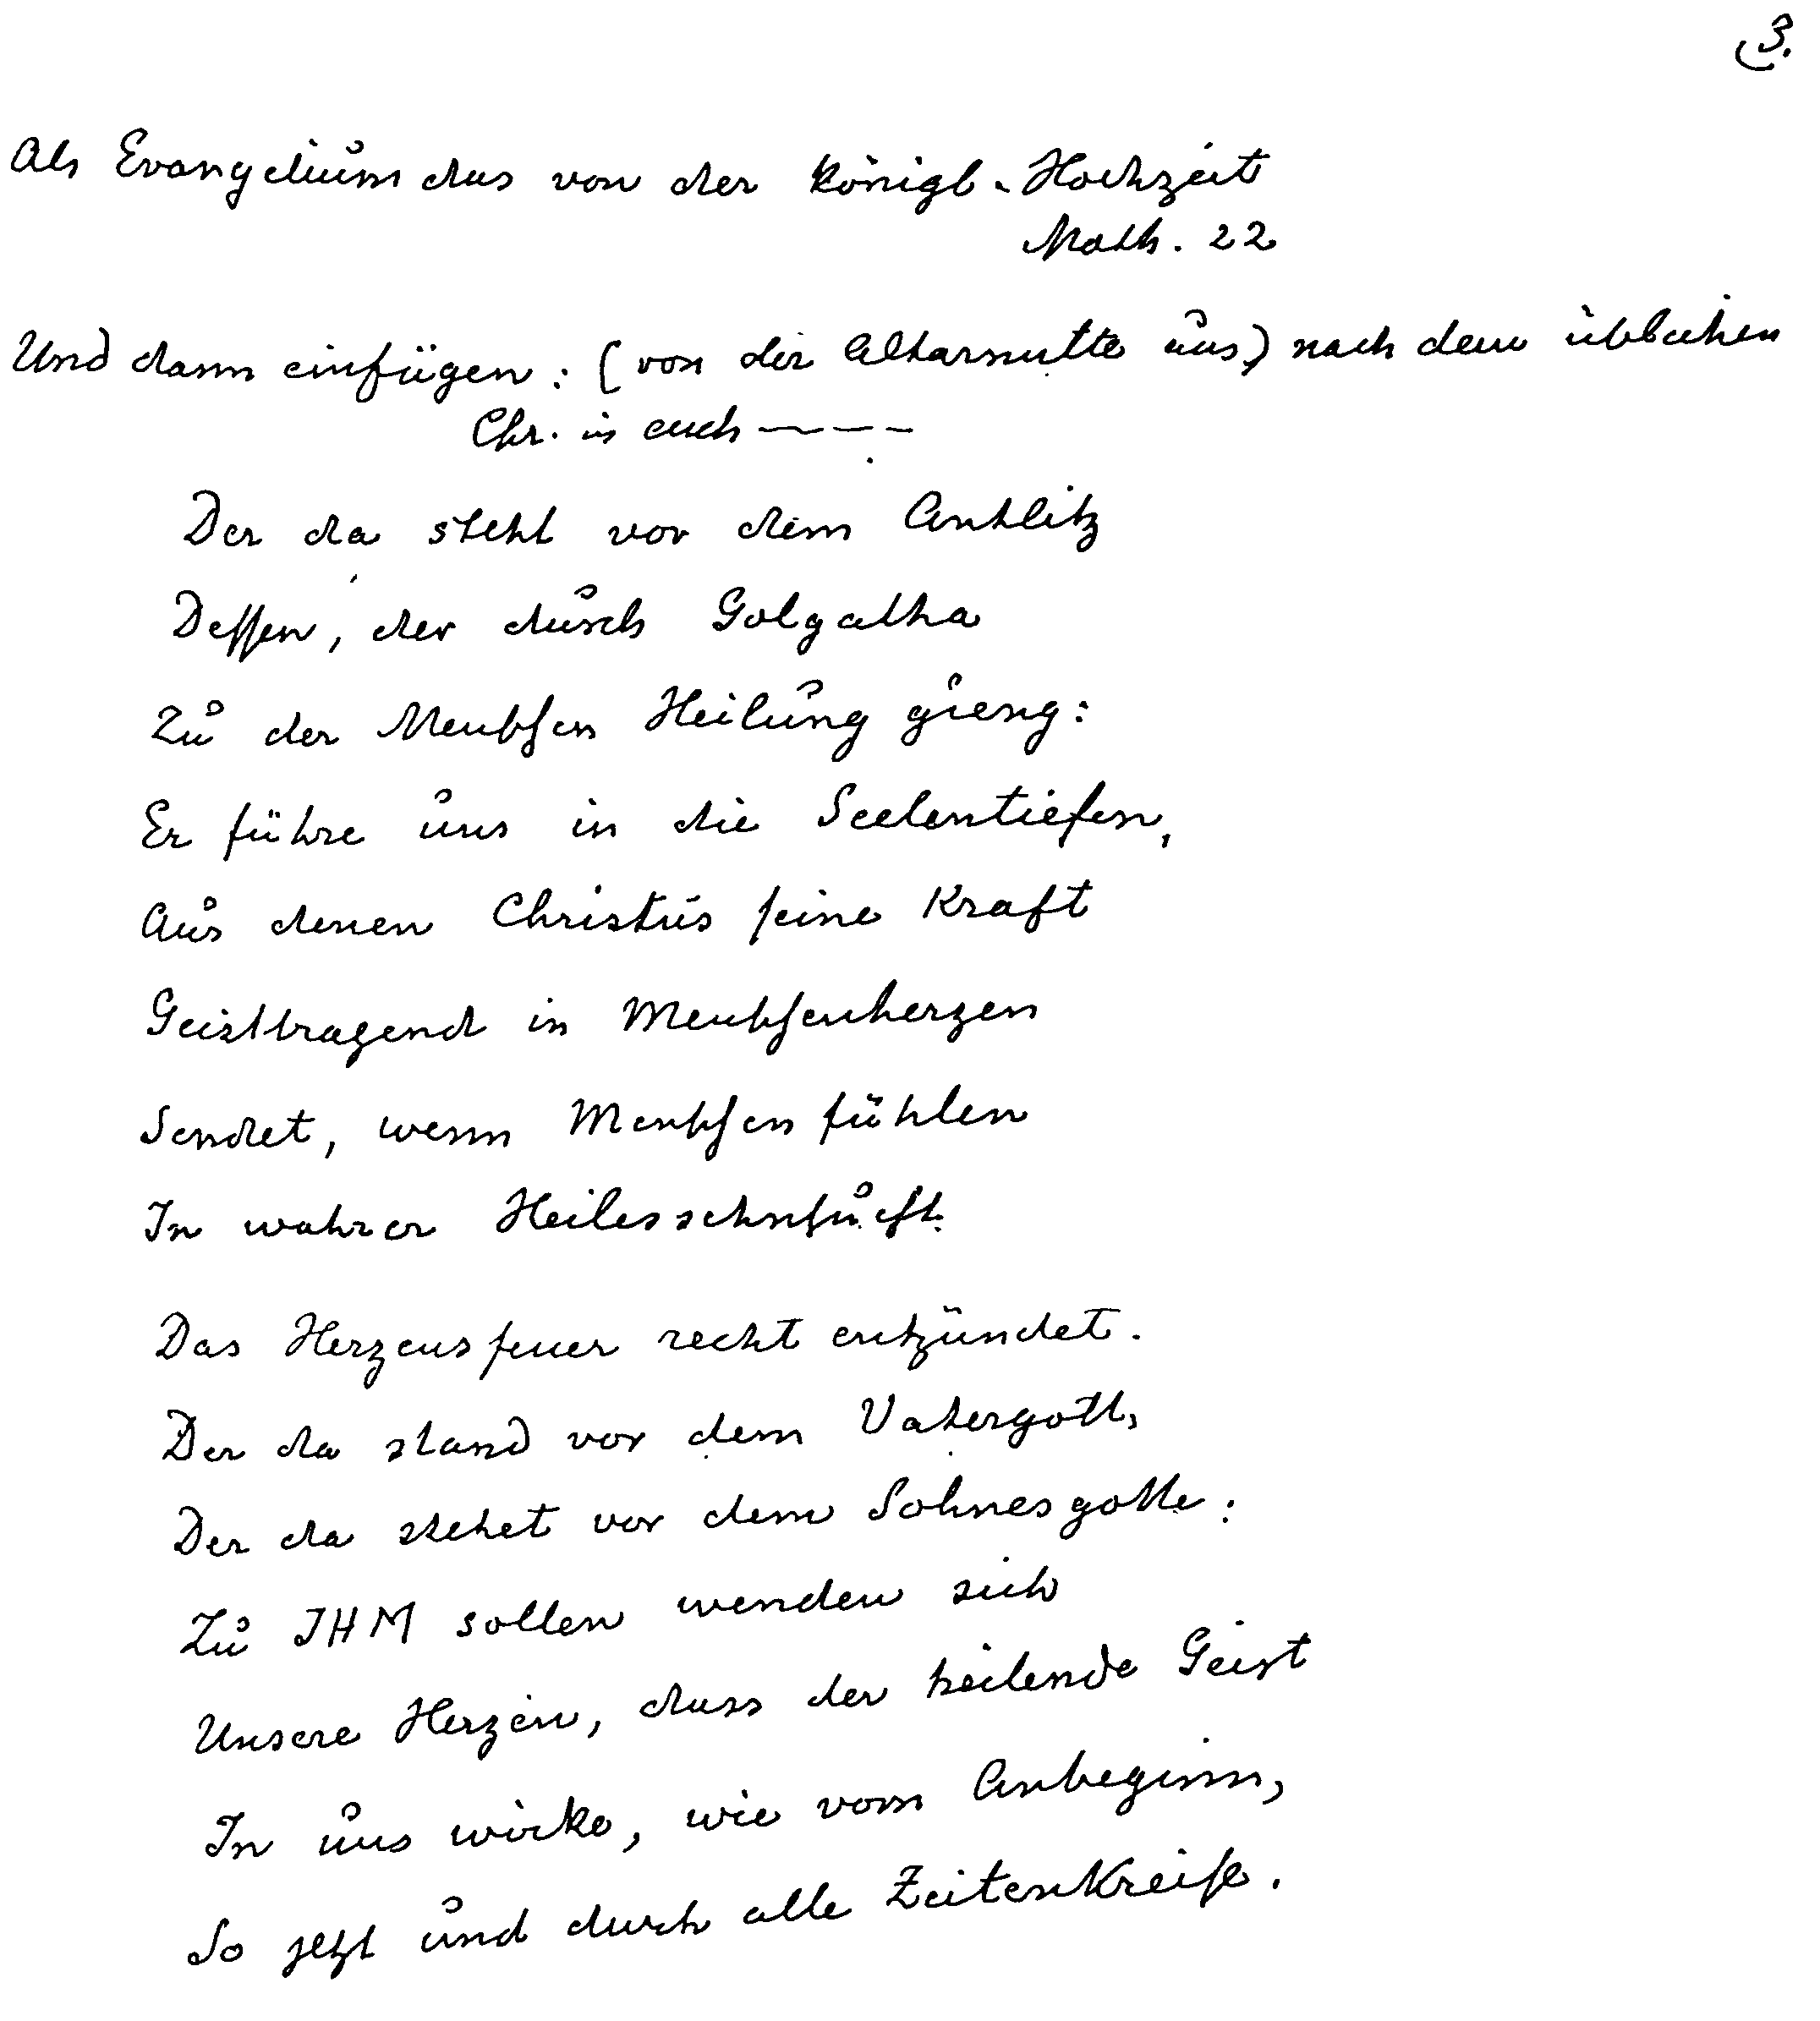 3.
Als Evangelium das von der königl. Hochzeit
Math. 22
Und dann einfügen: (von der Altarmitte aus) nach dem üblichen
Chr. in euch ----
Der da steht vor dem Antlitz
Dessen, der durch Golgatha
Zu der Menschen Heilung gieng:
Er führe uns in die Seelentiefen,
Aus denen Christus seine Kraft
Geisttragend in Menschenherzen
Sendet, wenn Menschen fühlen
In wahrer Heilessehnsucht.
Das Herzensfeuer recht entzündet.
Der da stand vor dem Vatergott,
Der da stehet vor dem Sohnesgotte:
Zu IHM sollen wenden sich
Unsere Herzen, dass der heilende Geist
In uns wirke, wie vom Anbeginn,
So jetzt und durch alle Zeitenkreise.